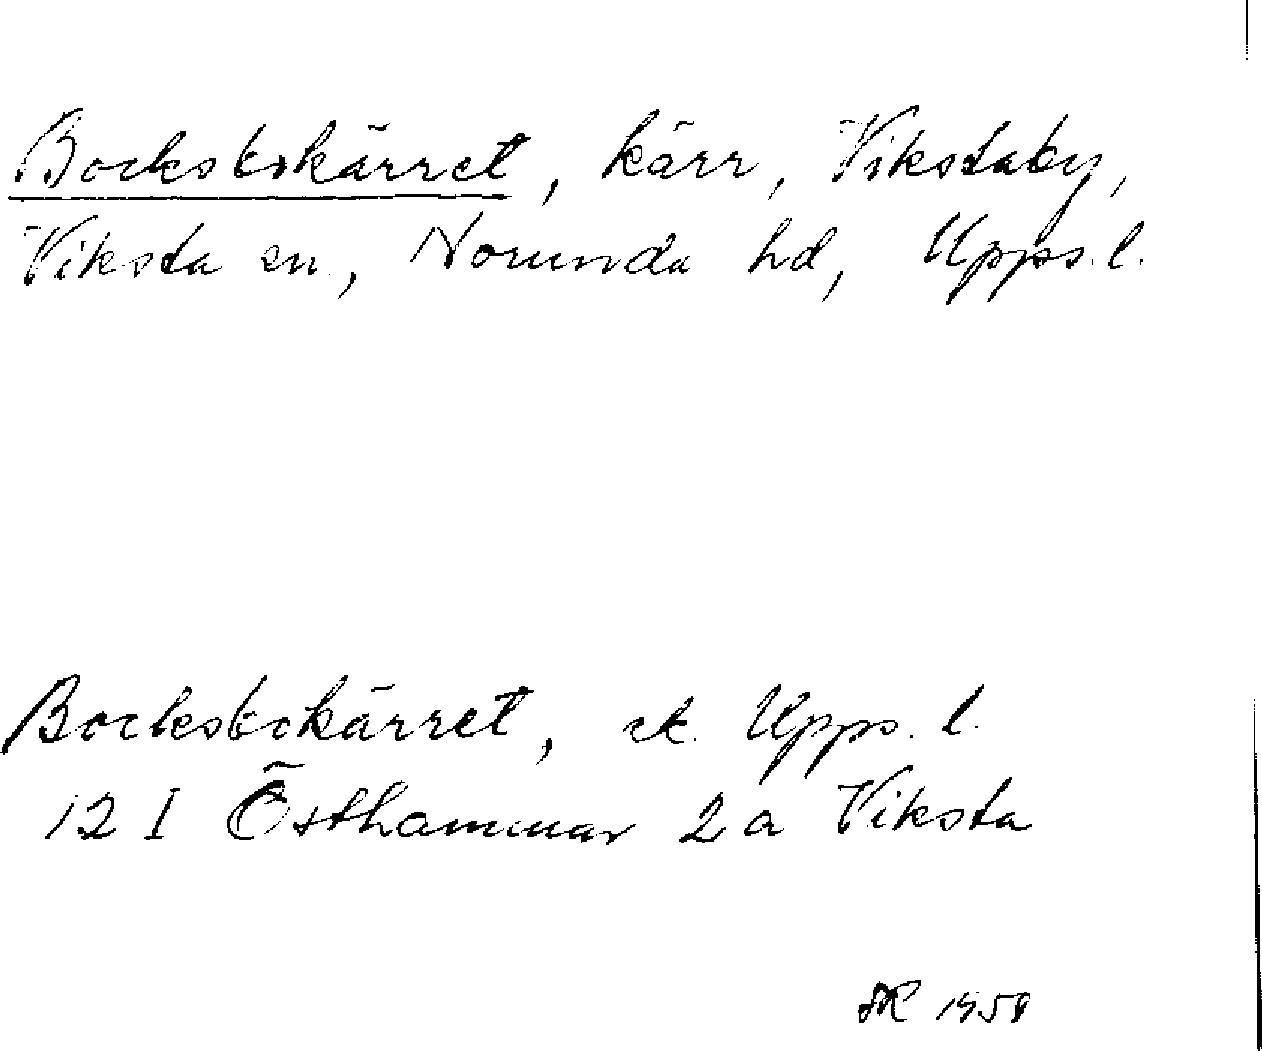 Bocksbokärret, kärr, Vikstaby,
Viksta sn, Norunda hd, Upps. l.
Bocksbokärret, ek. Upps. l.
12 I Östhammar 2 a Viksta
1958